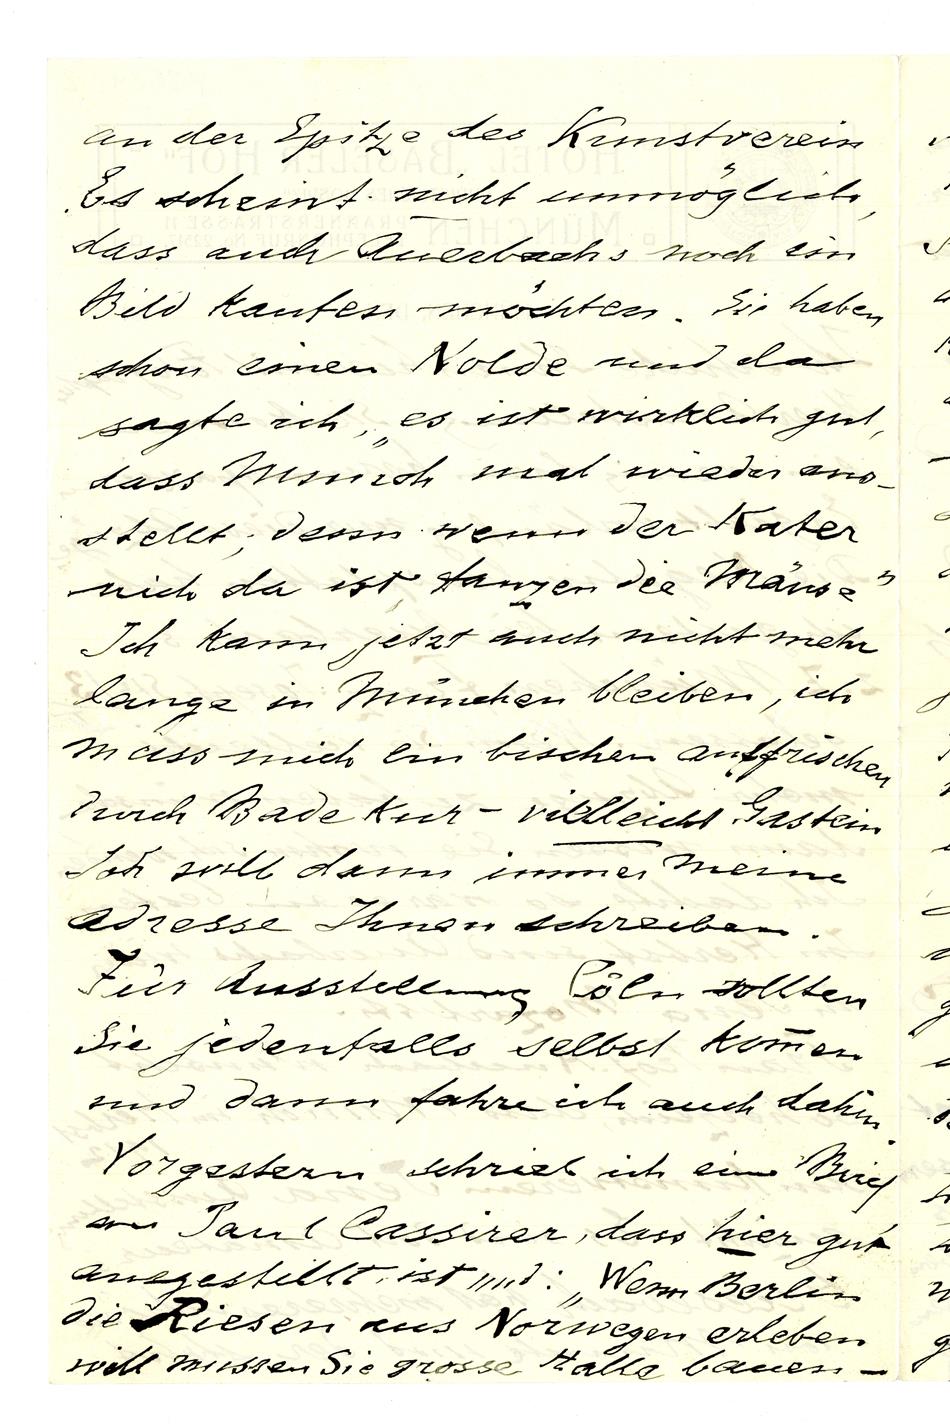 an der Spitze des Kunstverein
Es scheint nicht unmöglich,
dass auch Auerbachs noch ein
Bild kaufen möchten. Sie haben
schon einen Nolde und da
sagte ich, „es ist wirklich gut,
dass Munch mal wieder aus-
stellt, denn wenn der Kater
nich da ist, tanzen die Mäuse"
Ich kann jetzt auch nicht mehr
lange in München bleiben, ich
muss mich ein bischen auffrischen
durch Bade Kur – vielleicht Gastein
Ich will dann immer meine
Adresse Ihnen schreiben.
Für Ausstellung Cöln sollten
Sie jedenfalls selbst kom̅en
und dann fahre ich auch dahin.
Vorgestern schrieb ich ein Brief
an Paul Cassirer, dass hier gut
ausgestellt ist und: „Wenn Berlin
die Riesen aus Norwegen erleben
will mussen Sie grosse Halle bauen –